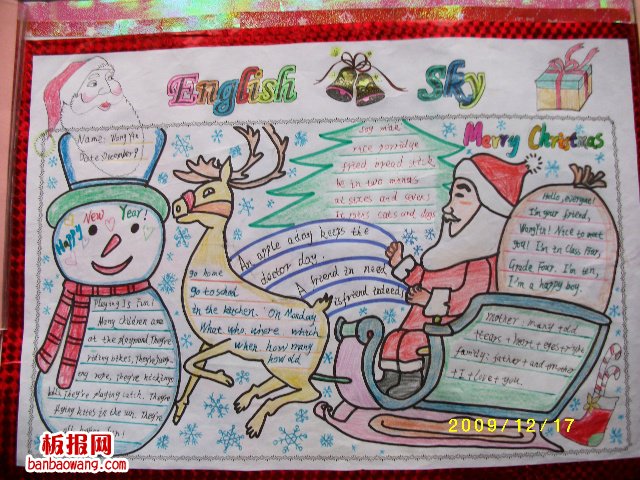 English Sky
Merry Christmas
Name: Wang Yi
Date: December 9
Happy New Year!
Playing Is Fun!
Many Children are
at the playground. They're
riding bikes, They're
rope, They're
They're playing catch, They're
flying kites in the sun. They're
fun!
go home
go to school
in the kitchen. On Monday
What who, where, which
when how many
how old
soy milk
rice porridge
fried bread stick
be in two minds
at sixes and sevens
cats and dogs
An apple a day keeps the
doctor day.
A friend in need
is friend indeed
Hello, everyone!
I'm your friend,
Nice to meet
you! I'm in Class Four,
Grade Four. I'm ten,
I'm a happy boy.
mother: many told
tears + heart + eyes + right
family: father + and + mother
+ I + love + you.
2009/12/17
板报网
banbaowang.com